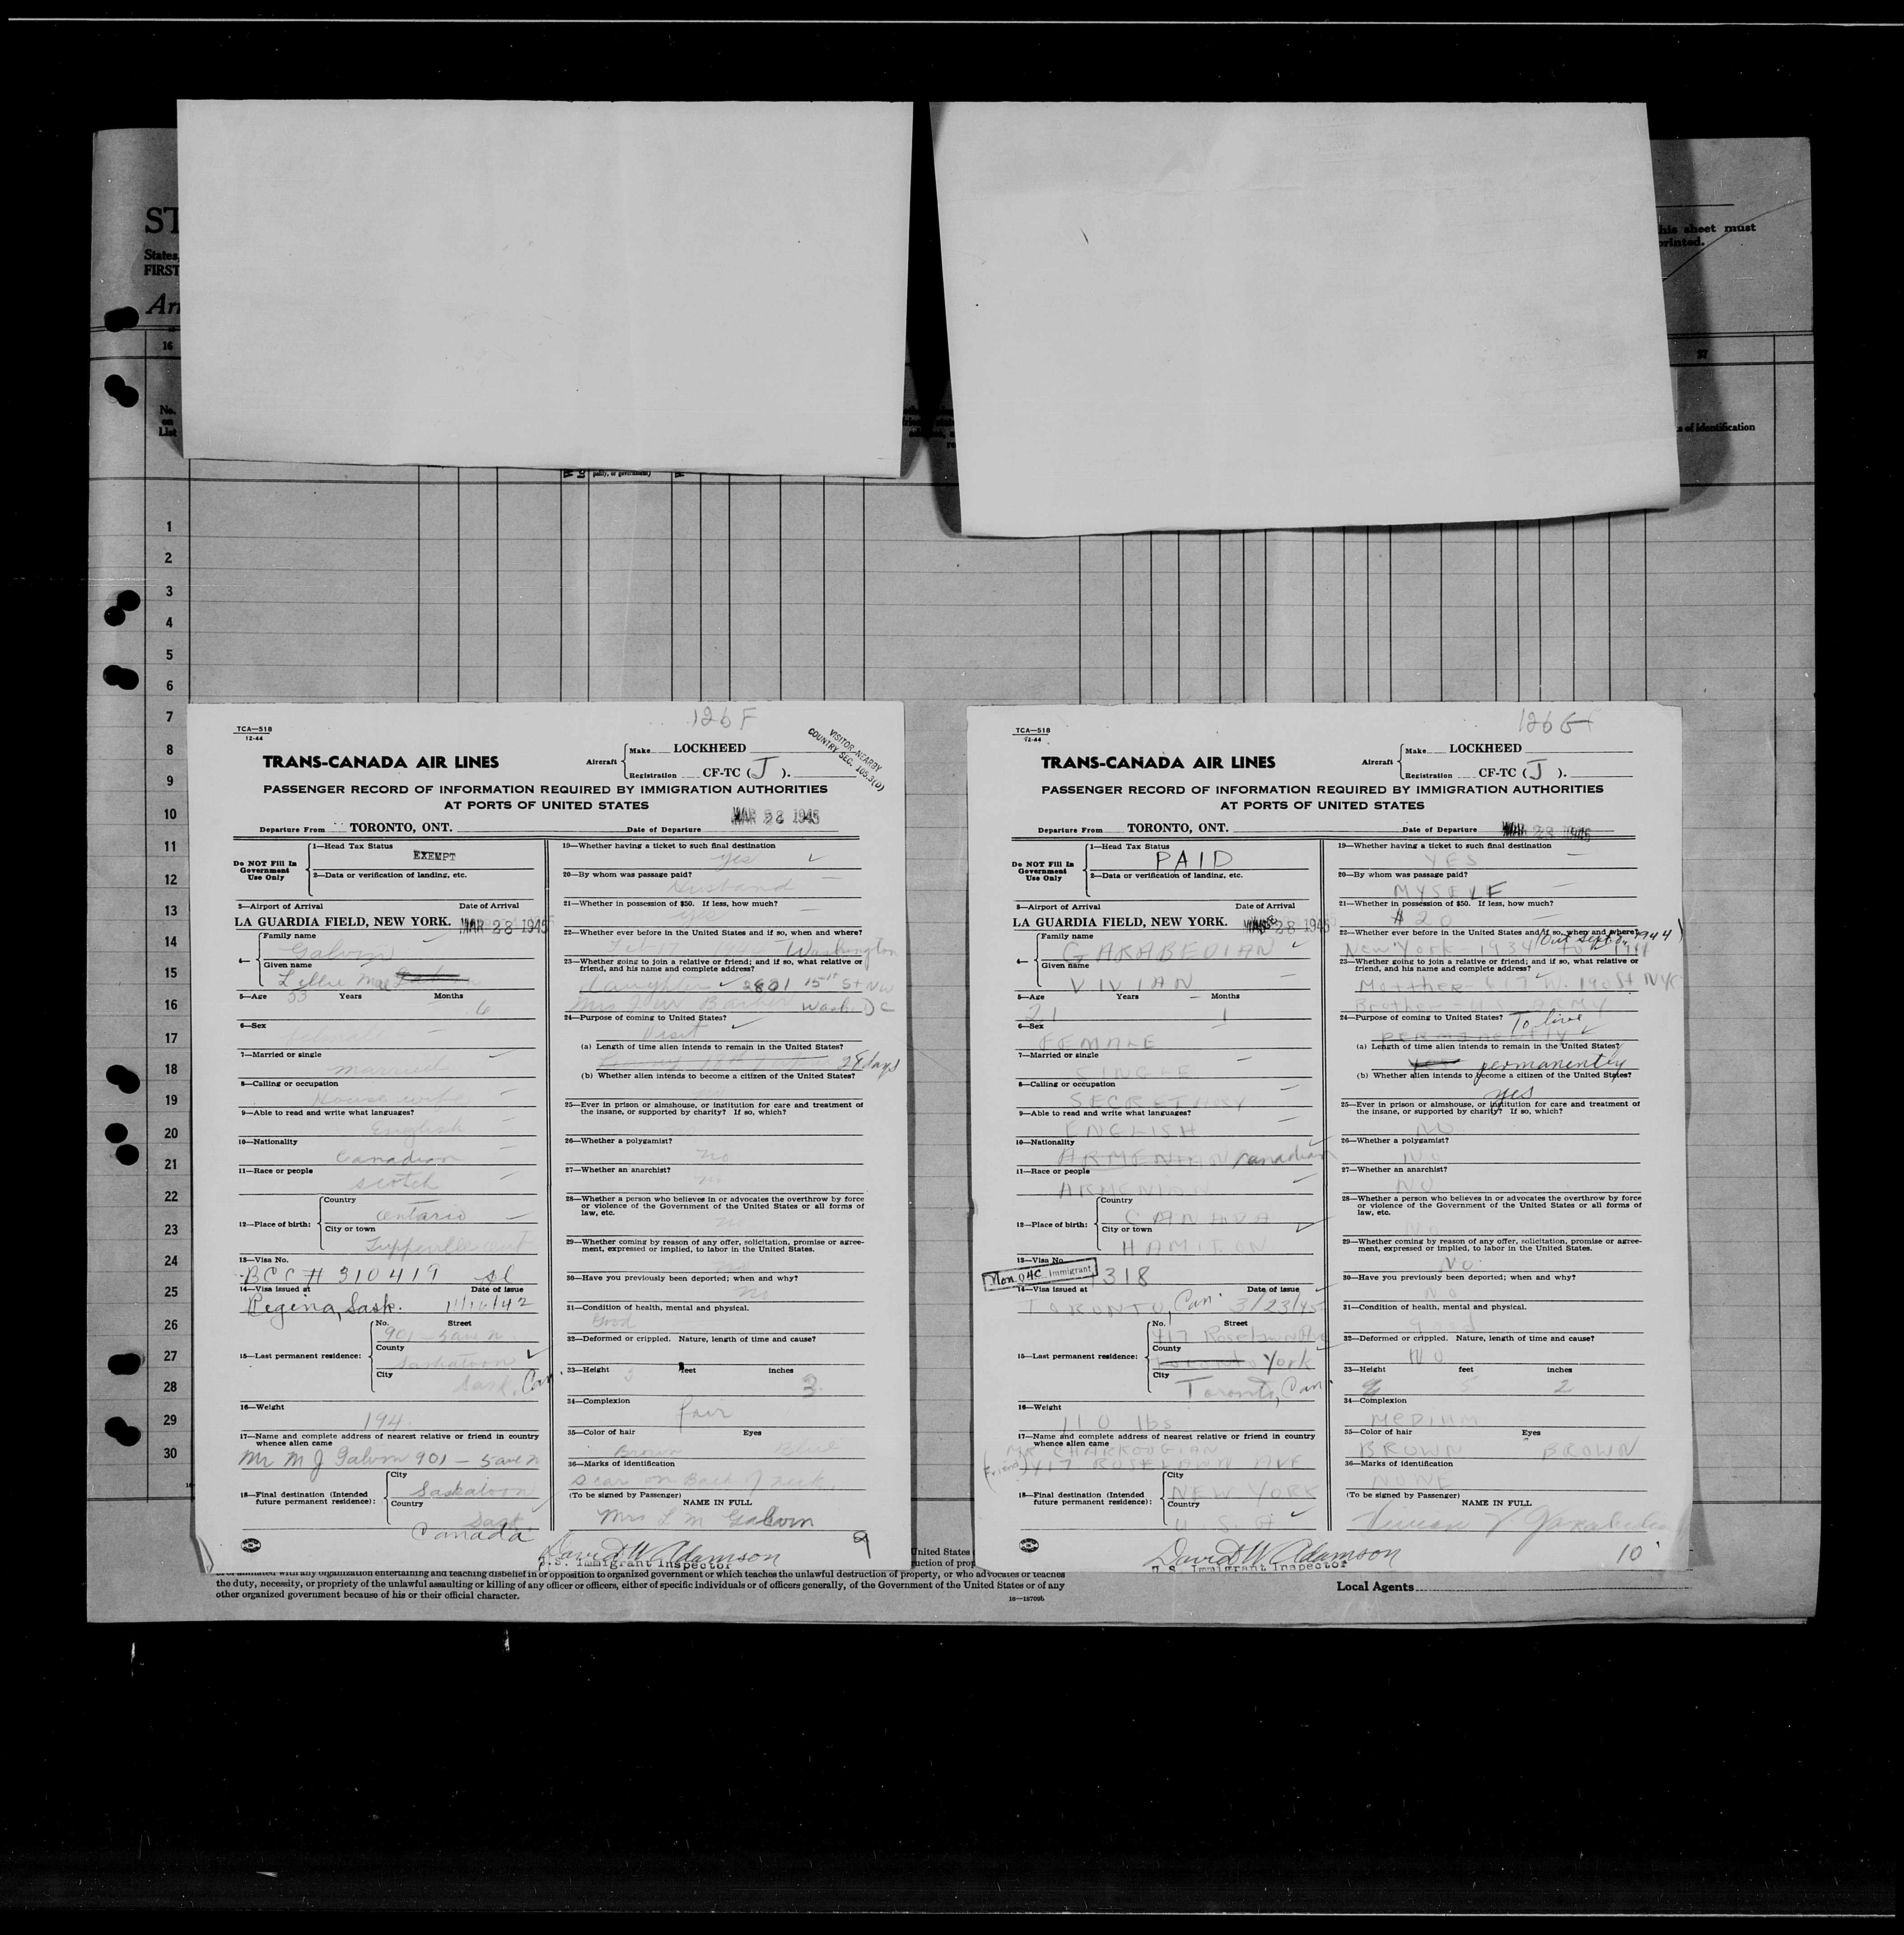 ST
States,
FIRST
his sheet must
printed.
16
27
No.
on
List
s of identification
paity, or government)
1
2
3
4
5
6
7
8
9
10
11
12
13
14
15
16
17
18
19
20
21
22
23
24
25
26
27
28
29
30
126 F
TCA—518
12-44
VISITOR-NEARBY
COUNTRY SEC. 105.3(0)
TRANS-CANADA AIR LINES
Aircraft
Make LOCKHEED
Registration CF-TC ( J ).
PASSENGER RECORD OF INFORMATION REQUIRED BY IMMIGRATION AUTHORITIES
AT PORTS OF UNITED STATES
Departure From TORONTO, ONT. Date of Departure MAR 28 1945
Do NOT Fill In
Government
Use Only
1—Head Tax Status
EXEMPT
2—Data or verification of landing, etc.
3—Airport of Arrival Date of Arrival
LA GUARDIA FIELD, NEW YORK. MAR 28 1945
4—
Family name
Galvin
Given name
Lellie Mae
5—Age 53 Years Months 6
6—Sex
7—Married or single
married
8—Calling or occupation
Housewife
9—Able to read and write what languages?
English
10—Nationality
Canadian
11—Race or people
scotch
12—Place of birth:
Country
Ontario
City or town
Tuppville ont
13—Visa No.
BCC # 310419
14—Visa issued at Date of issue
Regina, Sask. 11/16/42
15—Last permanent residence:
No. Street
901 - 5 ave n
County
Saskatoon
City
Sask. Can.
16—Weight
194
17—Name and complete address of nearest relative or friend in country
whence alien came
Mr M J Galvin 901 - 5 ave n
18—Final destination (Intended
future permanent residence):
City
Saskatoon
Country
Sask
Canada
19—Whether having a ticket to such final destination
yes
20—By whom was passage paid?
Husband
21—Whether in possession of $50. If less, how much?
yes
22—Whether ever before in the United States and if so, when and where?
Washington
23—Whether going to join a relative or friend; and if so, what relative or
friend, and his name and complete address?
daughter 2801 15th St NW
Mrs J W Barber Wash. DC
24—Purpose of coming to United States?
Visit
(a) Length of time alien intends to remain in the United States?
28 days
(b) Whether alien intends to become a citizen of the United States?
25—Ever in prison or almshouse, or institution for care and treatment of
the insane, or supported by charity? If so, which?
26—Whether a polygamist?
no
27—Whether an anarchist?
no
28—Whether a person who believes in or advocates the overthrow by force
or violence of the Government of the United States or all forms of
law, etc.
no
29—Whether coming by reason of any offer, solicitation, promise or agree-
ment, expressed or implied, to labor in the United States.
no
30—Have you previously been deported; when and why?
no
31—Condition of health, mental and physical.
Good
32—Deformed or crippled. Nature, length of time and cause?
33—Height feet inches 3
34—Complexion
fair
35—Color of hair Eyes
Brown Blue
36—Marks of identification
scar on Back of neck
(To be signed by Passenger)
NAME IN FULL
Mrs L M Galvin
David W. Adamson 9
U.S. Immigrant Inspector
126 G
TCA—518
12-44
TRANS-CANADA AIR LINES
Aircraft
Make LOCKHEED
Registration CF-TC ( J ).
PASSENGER RECORD OF INFORMATION REQUIRED BY IMMIGRATION AUTHORITIES
AT PORTS OF UNITED STATES
Departure From TORONTO, ONT. Date of Departure MAR 28 1945
Do NOT Fill In
Government
Use Only
1—Head Tax Status
PAID
2—Data or verification of landing, etc.
3—Airport of Arrival Date of Arrival
LA GUARDIA FIELD, NEW YORK. MAR 28 1945
4—
Family name
GARABEDIAN
Given name
VIVIAN
5—Age Years Months
21 1
6—Sex
FEMALE
7—Married or single
SINGLE
8—Calling or occupation
SECRETARY
9—Able to read and write what languages?
ENGLISH
10—Nationality
ARMENIAN Canadian
11—Race or people
ARMENIAN
12—Place of birth:
Country
CANADA
City or town
HAMILTON
13—Visa No.
Non Immigrant 318
14—Visa issued at Date of issue
TORONTO, Can. 3/23/45
15—Last permanent residence:
No. Street
417 Roselawn Ave
County
Toronto York
City
Toronto, Can.
16—Weight
110 lbs
17—Name and complete address of nearest relative or friend in country
whence alien came
MR CHARKOOGIAN
(Friend) 417 ROSELAWN AVE
18—Final destination (Intended
future permanent residence):
City
NEW YORK
Country
U. S. A
19—Whether having a ticket to such final destination
YES
20—By whom was passage paid?
MYSELF
21—Whether in possession of $50. If less, how much?
$ 20
22—Whether ever before in the United States and if so, when and where?
New York - 1934 to (Out Sept. 8, 1944)
23—Whether going to join a relative or friend; and if so, what relative or
friend, and his name and complete address?
Motther - 617 W. 190 St NYC
Brother - U.S. ARMY
24—Purpose of coming to United States? To live
PERMANENTLY
(a) Length of time alien intends to remain in the United States?
yes permanently
(b) Whether alien intends to become a citizen of the United States?
yes
25—Ever in prison or almshouse, or institution for care and treatment of
the insane, or supported by charity? If so, which?
NO
26—Whether a polygamist?
NO
27—Whether an anarchist?
NO
28—Whether a person who believes in or advocates the overthrow by force
or violence of the Government of the United States or all forms of
law, etc.
NO
29—Whether coming by reason of any offer, solicitation, promise or agree-
ment, expressed or implied, to labor in the United States.
NO
30—Have you previously been deported; when and why?
NO
31—Condition of health, mental and physical.
good
32—Deformed or crippled. Nature, length of time and cause?
NO
33—Height feet inches
5 2
34—Complexion
MEDIUM
35—Color of hair Eyes
BROWN BROWN
36—Marks of identification
NONE
(To be signed by Passenger)
NAME IN FULL
Vivian V Garabedian
David W. Adamson 10
U.S. Immigrant Inspector
United States
ruction of prop
or affiliated with any organization entertaining and teaching disbelief in or opposition to organized government or which teaches the unlawful destruction of property, or who advocates or teaches
the duty, necessity, or propriety of the unlawful assaulting or killing of any officer or officers, either of specific individuals or of officers generally, of the Government of the United States or of any
other organized government because of his or their official character.
16—18709b
Local Agents